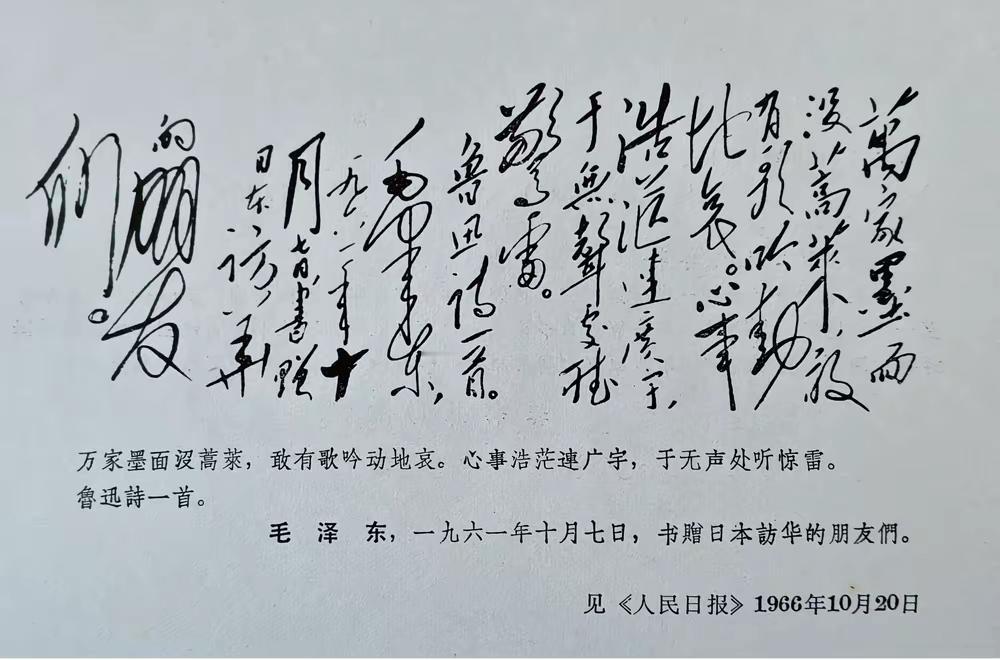 萬家墨面
沒蒿萊，敢
有歌吟動
地哀。心事
浩茫連廣宇，
于無聲處聽
驚雷。
魯迅詩一首。
毛澤东，
一九六一年十
月七日，書贈
日本訪華
的朋友
们。
万家墨面沒蒿萊，敢有歌吟动地哀。心事浩茫連广宇，于无声处听惊雷。
魯迅詩一首。
毛泽东，一九六一年十月七日，书赠日本訪华的朋友們。
见《人民日报》1966年10月20日